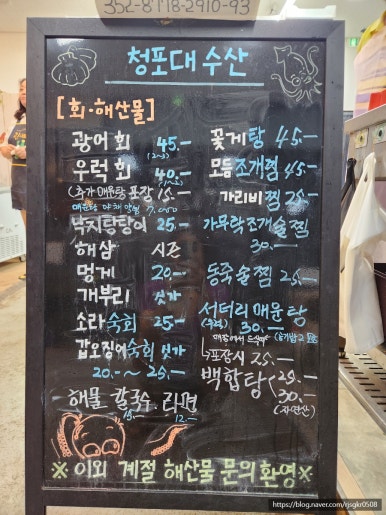 352-8118-2910-93
청포대 수산
[회·해산물]
광어회 45.-
(2~3)
우럭회 40.-
(추가 매운탕 포장) 15.-
매운탕 야채 양념 7,000
낙지탕탕이 25.-
해삼 시즌
멍게 20.-
개부리 싯가
소라숙회 25.-
갑오징어숙회 싯가
20.-~25.-
해물 칼국수. 라면
15.- 12.-
꽃게탕 45.-
모듬조개찜 45.-
가리비찜 25.-
가무락조개술찜
30.-
동죽술찜 25.-
서더리매운탕
(우럭) 30.- (공기밥2 포함)
매장에서 드실때
↳포장시 25.-
백합탕 25.-
30.-
(자연산)
※이외 계절 해산물 문의 환영※
https://blog.naver.com/rjsgkr0508